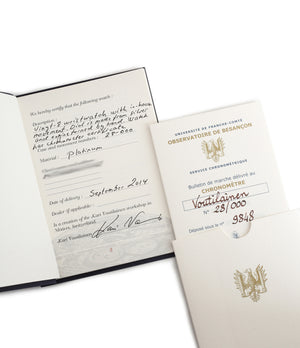 We hereby certify that the following watch:
Description:
Vingt-8 wristwatch with in-house
movement. Dial is made from silver
and engine turned by hand. Watch
has chronometer certificate.
Title and movement number: 28-000
Material: Platinum
Date of delivery: September 2014
Dealer if applicable:
Is a creation of the Kari Voutilainen workshop in
Môtiers, Switzerland.
Kari Voutilainen
UNIVERSITÉ DE FRANCHE-COMTÉ
OBSERVATOIRE DE BESANÇON
SERVICE CHRONOMÉTRIQUE
Bulletin de marche délivré au
CHRONOMÈTRE
Voutilainen
N° 28/000
Déposé sous le n° 9848